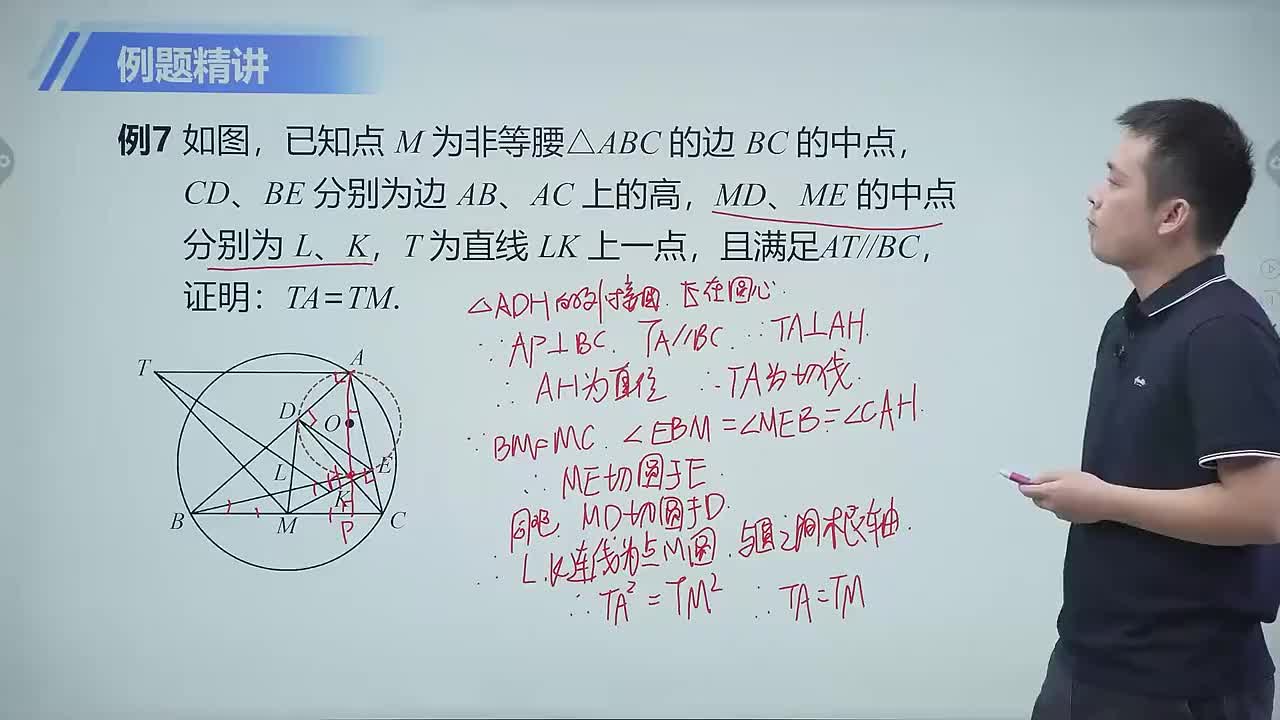 例题精讲
例7 如图，已知点 M 为非等腰△ABC 的边 BC 的中点，
CD、BE 分别为边 AB、AC 上的高，MD、ME 的中点
分别为 L、K，T 为直线 LK 上一点，且满足AT//BC，
证明：TA=TM.
△ADH的外接圆. 占在圆心.
∵ AP⊥BC. TA//BC. ∴ TA⊥AH.
∵ AH为直径 ∴ TA为切线.
∵ BM=MC. ∠EBM=∠MEB=∠CAH.
∴ ME切圆于E.
同理, MD切圆于D.
∴ L.K连线为点M圆.与圆之间根轴.
∴ TA²=TM² ∴ TA=TM
T A
D O
L E
K
B M P C